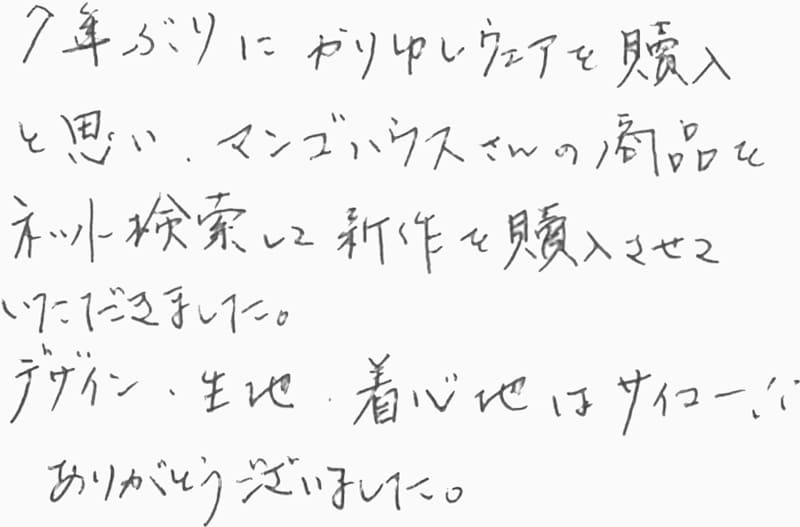 7年ぶりにかりゆしウェアを贖入
と思い、マンゴハウスさんの商品を
ネット検索して新作を贖入させて
いただきました。
デザイン、生地、着心地はサイコー!!
ありがとうございました。